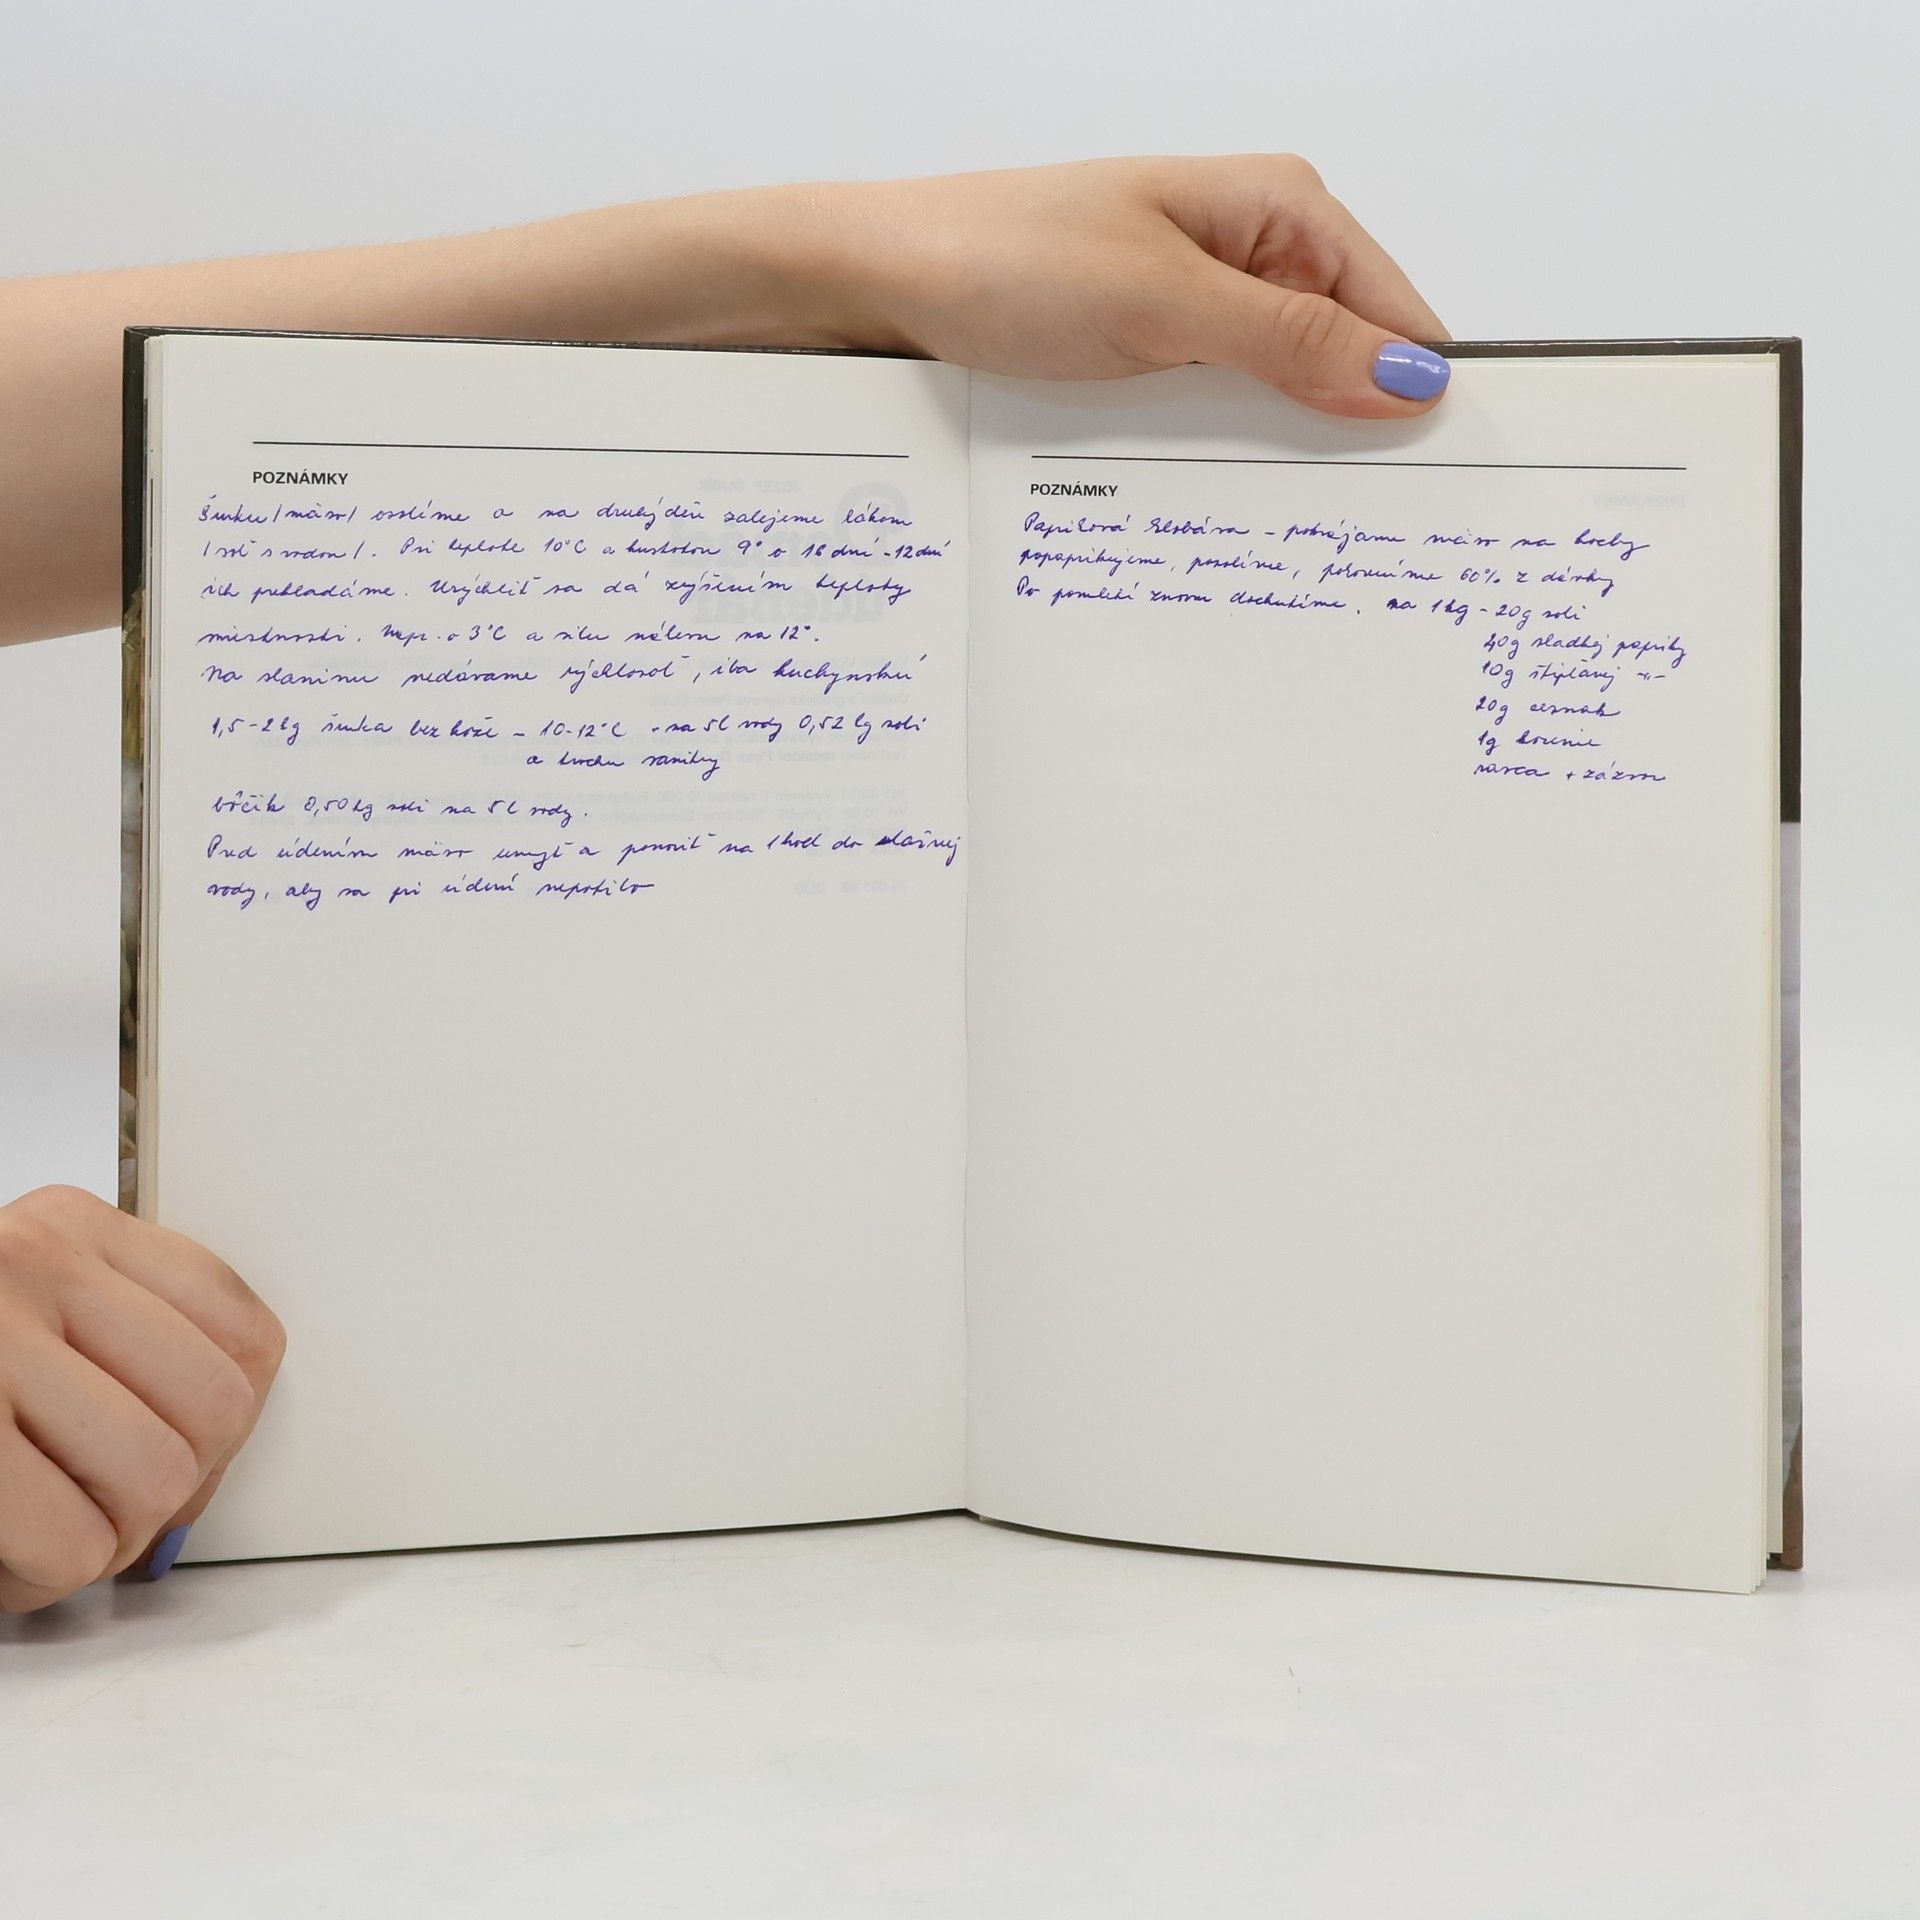 POZNÁMKY
Šunku /mäso/ osolíme a na druhý deň zalejeme lákom
/soľ s vodou/. Pri teplote 10°C a hustotou 9° o 16 dní - 12 dní
ich prekladáme. Urýchliť sa dá zvýšením teploty
miestnosti. Napr. o 3°C a silu nálevu na 12°.
Na slaninu nedávame rýchlosoľ, iba kuchynskú
1,5-2kg šunka bez kože - 10-12°C - na 5l vody 0,52 kg soli
a trochu sanitry
bôčik 0,50kg soli na 5l vody.
Pred údením mäso umyť a ponoriť na 1hod do vlažnej
vody, aby sa pri údení nepotilo
POZNÁMKY
Papriková klobása - pokrájame mäso na kocky
popaprikujeme, posolíme, 60% z dávky
Po pomletí znovu dochutíme. na 1kg - 20g soli
20g sladkej papriky
10g štipľavej -"-
20g cesnak
1g korenie
rasca + zázvor